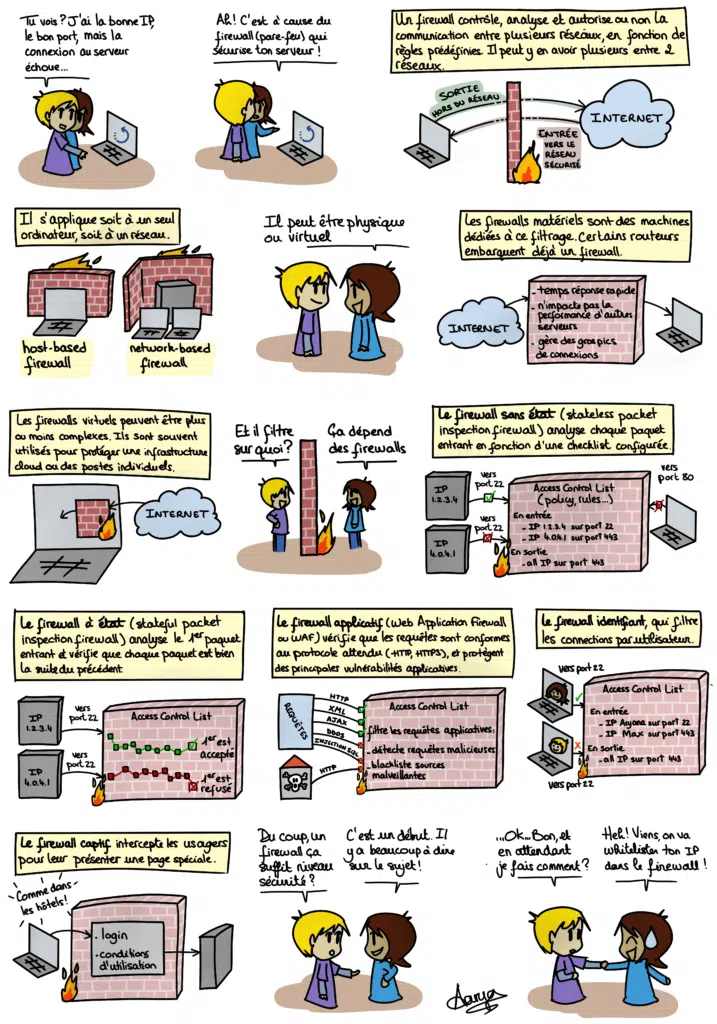 Tu vois ? J'ai la bonne IP,
le bon port, mais la
connexion au serveur
échoue...
Ah! C'est à cause du
firewall (pare-feu) qui
sécurise ton serveur !
Un firewall contrôle, analyse et autorise ou non la
communication entre plusieurs réseaux, en fonction de
règles prédéfinies. Il peut y en avoir plusieurs entre 2
réseaux.
SORTIE
HORS DU RÉSEAU
INTERNET
ENTRÉE
VERS LE
RÉSEAU
SÉCURISÉ
Il s'applique soit à un seul
ordinateur, soit à un réseau.
host-based
firewall
network-based
firewall
Il peut être physique
ou virtuel
Les firewalls matériels sont des machines
dédiées à ce filtrage. Certains routeurs
embarquent déjà un firewall.
INTERNET
- temps réponse rapide
- n'impacte pas la
performance d'autres
serveurs
- gère des gros pics
de connexions
Les firewalls virtuels peuvent être plus
ou moins complexes. Ils sont souvent
utilisés pour protéger une infrastructure
cloud ou des postes individuels.
INTERNET
Et il filtre
sur quoi ?
Ça dépend
des firewalls
Le firewall sans état (stateless packet
inspection firewall) analyse chaque paquet
entrant en fonction d'une checklist configurée.
IP
1.2.3.4
vers
port 22
IP
4.0.4.1
vers
port 22
Access Control List
(policy, rules...)
En entrée
- IP 1.2.3.4 sur port 22
- IP 4.0.4.1 sur port 443
En sortie
- all IP sur port 443
vers
port 80
Le firewall à état (stateful packet
inspection firewall) analyse le 1er paquet
entrant et vérifie que chaque paquet est bien
la suite du précédent
IP
1.2.3.4
vers
port 22
IP
4.0.4.1
vers
port 22
Access Control List
1er est
accepté
1er est
refusé
Le firewall applicatif (Web Application Firewall
ou WAF) vérifie que les requêtes sont conformes
au protocole attendu (HTTP, HTTPS), et protègent
des principales vulnérabilités applicatives.
REQUÊTES
HTTP
XML
AJAX
DDOS
INJECTION SQL
HTTP
Access Control List
filtre les requêtes applicatives:
- détecte requêtes malicieuses
- blackliste sources
malveillantes
Le firewall identifiant, qui filtre
les connections par utilisateur.
vers port 22
vers port 22
Access Control List
En entrée
- IP Aryana sur port 22
- IP Max sur port 443
En sortie
- all IP sur port 443
Le firewall captif intercepte les usagers
pour leur présenter une page spéciale.
Comme dans
les hôtels!
- login
- conditions
d'utilisation
Du coup, un
firewall ça
suffit niveau
sécurité ?
C'est un début. Il
y a beaucoup à dire
sur le sujet !
...Ok... Bon, et
en attendant
je fais comment ?
Heh! Viens, on va
whitelister ton IP
dans le firewall !
Aarya